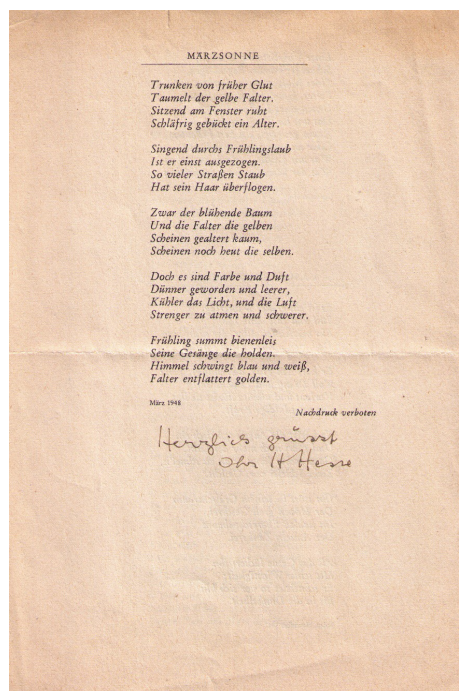 MÄRZSONNE
Trunken von früher Glut
Taumelt der gelbe Falter.
Sitzend am Fenster ruht
Schläfrig gebückt ein Alter.
Singend durchs Frühlingslaub
Ist er einst ausgezogen.
So vieler Straßen Staub
Hat sein Haar überflogen.
Zwar der blühende Baum
Und die Falter die gelben
Scheinen gealtert kaum,
Scheinen noch heut die selben.
Doch es sind Farbe und Duft
Dünner geworden und leerer,
Kühler das Licht, und die Luft
Strenger zu atmen und schwerer.
Frühling summt bienenleis
Seine Gesänge die holden.
Himmel schwingt blau und weiß,
Falter entflattert golden.
März 1948
Nachdruck verboten
Herzlich grüsst
Ihr H Hesse